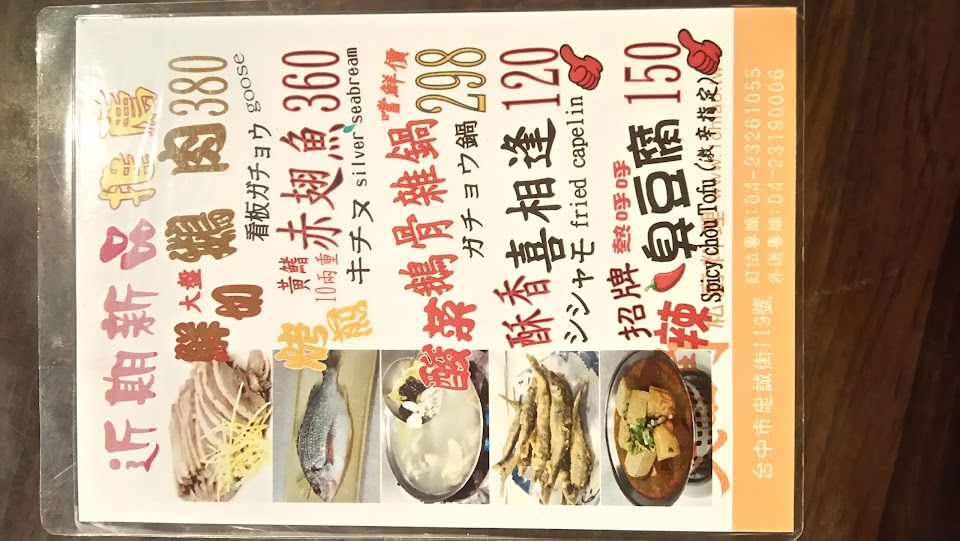 近期新品推薦
大盤
鮮切鵝肉380
看板ガチョウ goose
黃鰭
10兩重
烤煎
赤翅魚360
キチヌ silver seabream
嚐鮮價
酸菜鵝骨雜鍋298
ガチョウ鍋
酥香喜相逢120
シシャモ fried capelin
招牌 熱呼呼
辣臭豆腐150
Spicy chou Tofu(激辛指定)
台中市忠誠街119號
訂位專線:04-23261055
外送專線:04-23190006